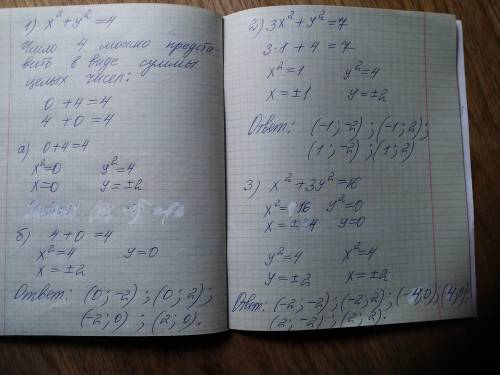 1) x² + y² = 4
Число 4 можно предста-
вить в виде суммы
целых чисел:
0 + 4 = 4
4 + 0 = 4
а) 0 + 4 = 4
x² = 0 y² = 4
x = 0 y = ±2
б) 4 + 0 = 4
x² = 4 y = 0
x = ±2
Ответ: (0; -2); (0; 2);
(-2; 0); (2; 0).
2) 3x² + y² = 7
3·1 + 4 = 7
x² = 1 y² = 4
x = ±1 y = ±2
Ответ: (-1; -2); (-1; 2);
(1; -2); (1; 2)
3) x² + 3y² = 16
x² = 16 y² = 0
x = ±4 y = 0
y² = 4 x² = 4
y = ±2 x = ±2
Ответ: (-2; -2); (-2; 2); (-4; 0); (4; 0);
(2; -2); (2; 2).